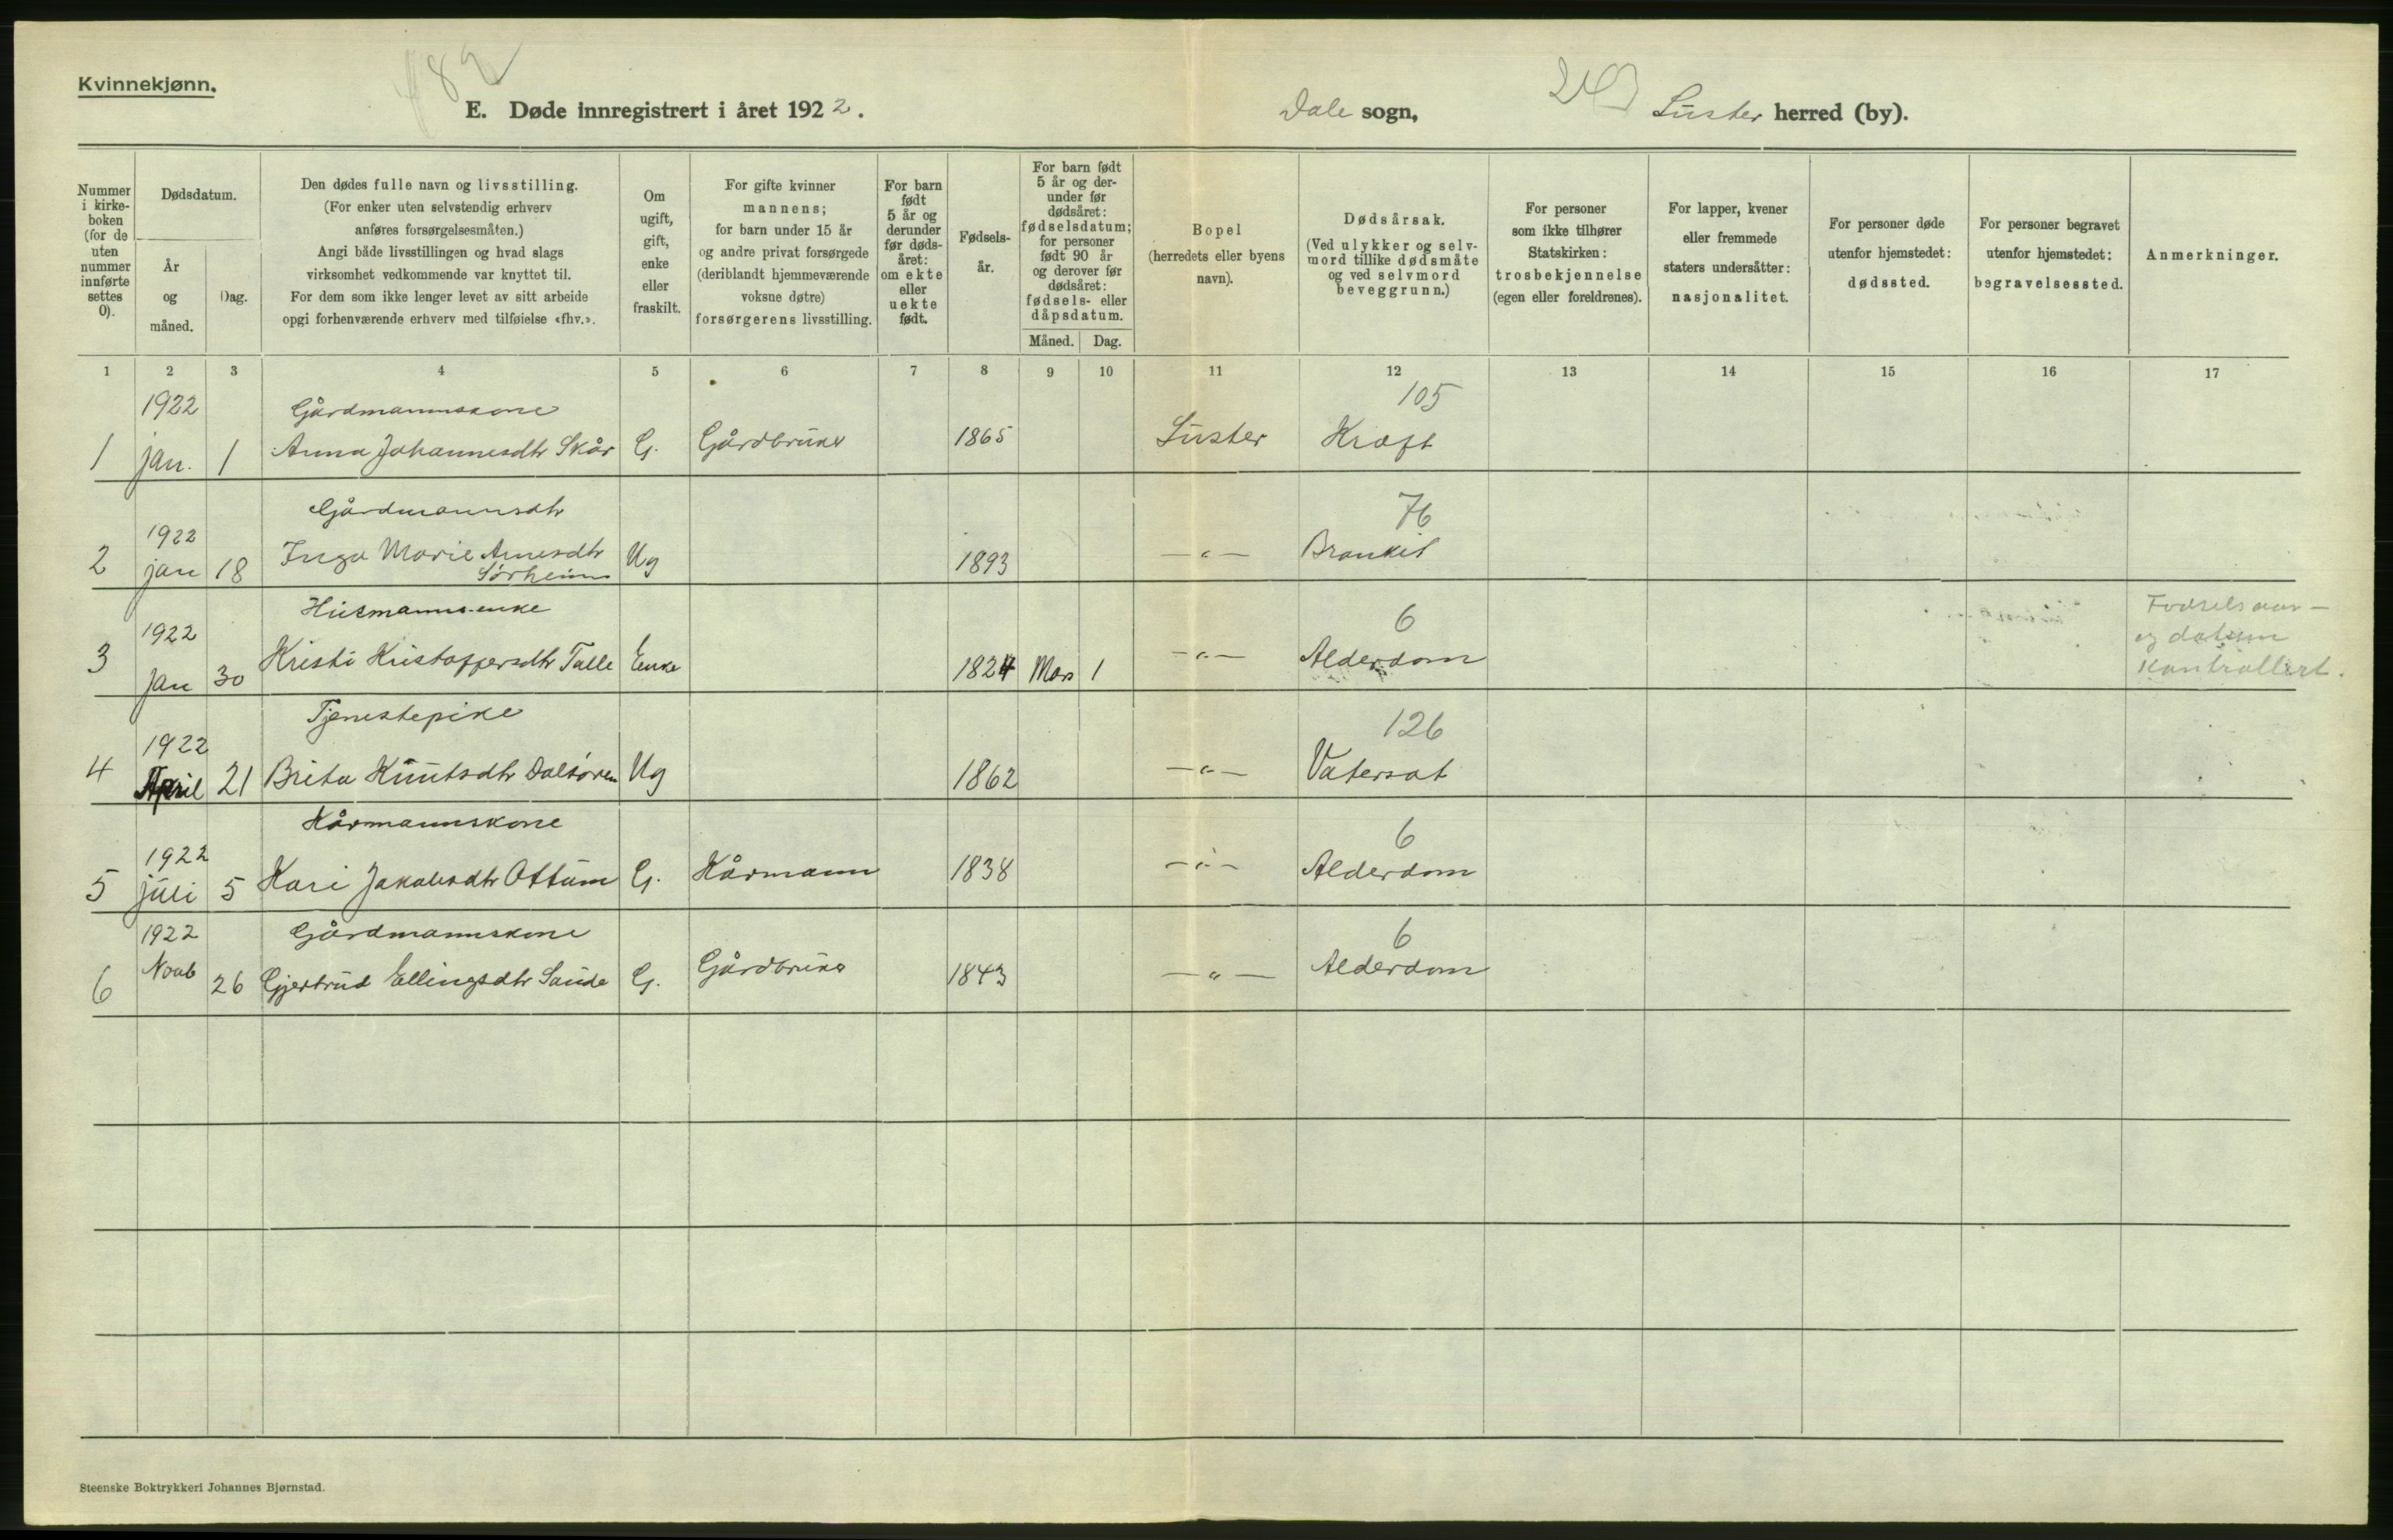 Kvinnekjønn.
E. Døde innregistrert i året 1922.
Dale sogn,
Luster herred (by).
Nummer i kirkeboken (for de uten nummer innførte settes 0).
Dødsdatum.
År og måned.
Dag.
Den dødes fulle navn og livsstilling.
(For enker uten selvstendig erhverv
anføres forsørgelsesmåten.)
Angi både livsstillingen og hvad slags
virksomhet vedkommende var knyttet til.
For dem som ikke lenger levet av sitt arbeide
opgi forhenværende erhverv med tilføielse «fhv.».
Om
ugift,
gift,
enke
eller
fraskilt.
For gifte kvinner
mannens;
for barn under 15 år
og andre privat forsørgede
(deriblandt hjemmeværende
voksne døtre)
forsørgerens livsstilling.
For barn
født
5 år og
derunder
før døds-
året:
om ekte
eller
uekte
født.
Fødsels-
år.
For barn født
5 år og der-
under før
dødsåret:
fødselsdatum;
for personer
født 90 år
og derover før
dødsåret:
fødsels- eller
dåpsdatum.
Måned. Dag.
Bopel
(herredets eller byens
navn).
Dødsårsak.
(Ved ulykker og selv-
mord tillike dødsmåte
og ved selvmord
beveggrunn.)
For personer
som ikke tilhører
Statskirken:
trosbekjennelse
(egen eller foreldrenes).
For lapper, kvener
eller fremmede
staters undersåtter:
nasjonalitet.
For personer døde
utenfor hjemstedet:
dødssted.
For personer begravet
utenfor hjemstedet:
begravelsessted.
Anmerkninger.
1 2 3 4 5 6 7 8 9 10 11 12 13 14 15 16 17
1922 Gårdmannskone 105
1 jan. 1 Anna Johannesdtr Skår G. Gårdbruker 1865 Luster Kræft
Gårdmannsdtr 76
1922
2 jan 18 Inga Marie Arnesdtr Ug 1893 -"- Bronkit
Sørheim
Husmannsenke 6 Fødselsaar-
1922 og datum
3 Jan 30 Kristi Kristoffersdtr Talle Enke 1824 Mars 1 -"- Alderdom kontrollert.
Tjenestepike 126
1922
4 April 21 Brita Knutsdtr Dalsøren Ug 1862 -"- Vatersot
Kårmannskone 6
1922
5 juli 5 Kari Jakobsdtr Ottum G. Kårmann 1838 -"- Alderdom
1922 Gårdmannskone 6
6 Novb 26 Gjertrud Ellingsdtr Sande G. Gårdbruker 1843 -"- Alderdom
Steenske Boktrykkeri Johannes Bjørnstad.